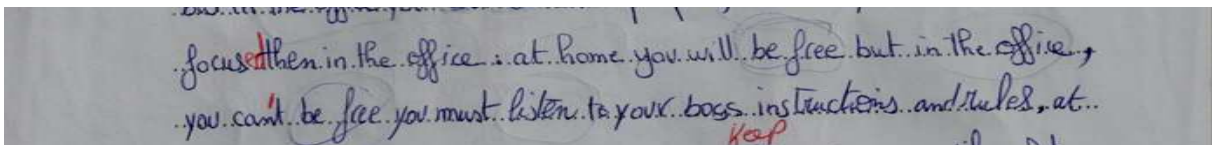 focused then in the office : at home you will be free but in the office,
you can't be free you must listen to your boss instructions and rules, at
Keep